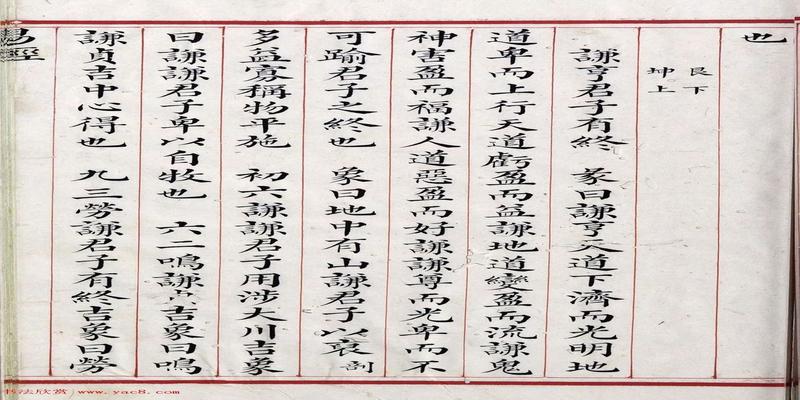 也
艮下
坤上
謙亨君子有終 彖曰謙亨天道下濟而光明地
道卑而上行天道虧盈而益謙地道變盈而流謙鬼
神害盈而福謙人道惡盈而好謙謙尊而光卑而不
可踰君子之終也 象曰地中有山謙君子以裒
剖
多益寡稱物平施 初六謙謙君子用涉大川吉象
曰謙謙君子卑以自牧也 六二鳴謙貞吉象曰鳴
謙貞吉中心得也 九三勞謙君子有終吉象曰勞
易經
书法欣赏 www.yac8.com